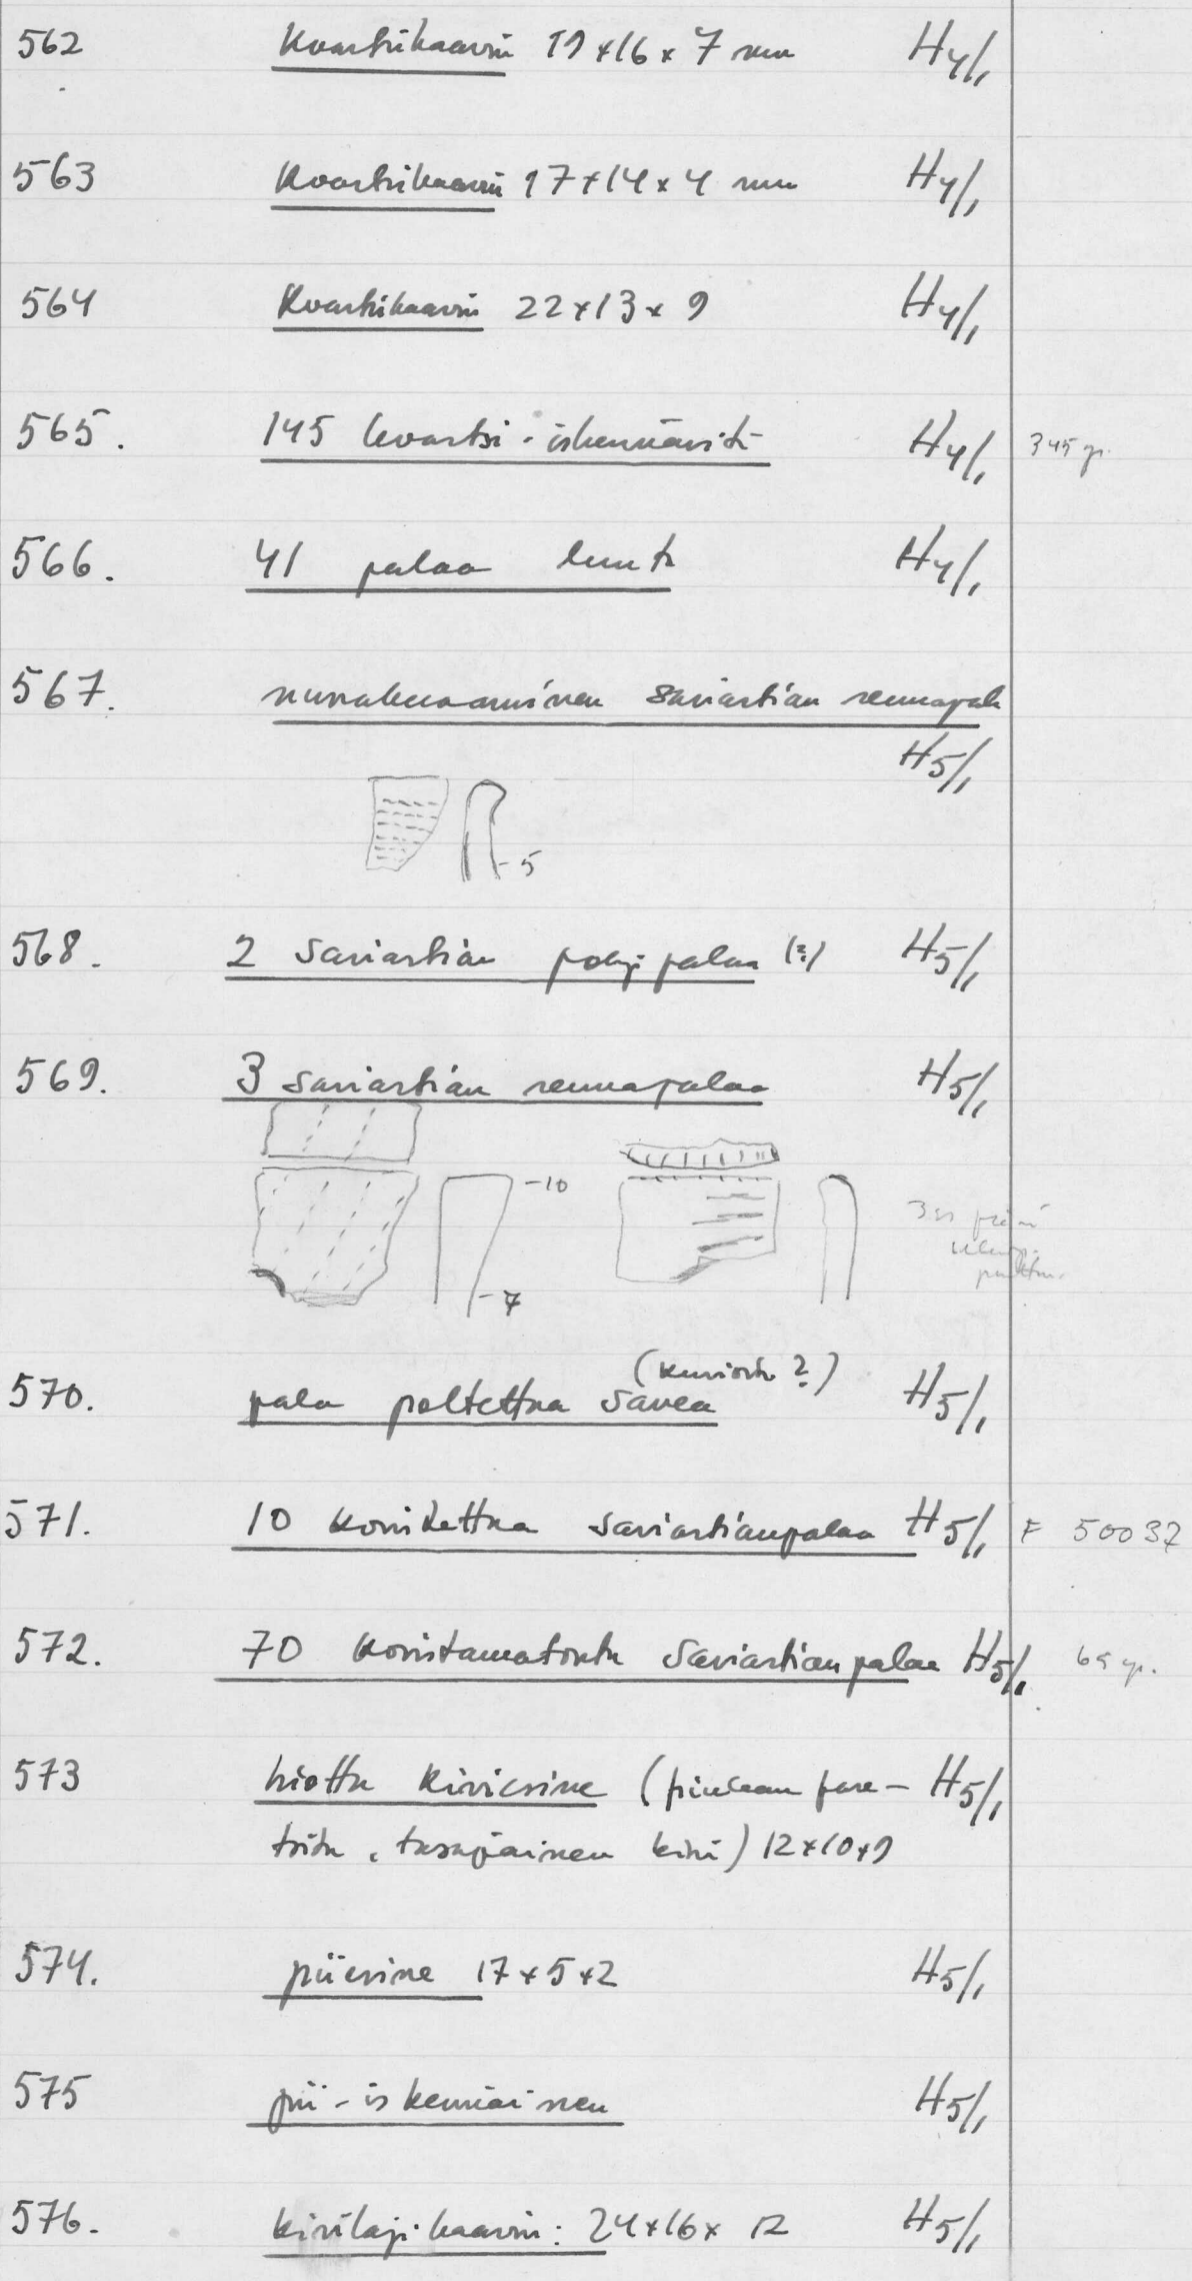 562 Kvartsikaavin 19 x 16 x 7 mm H4/1
563 Kvartsikaavin 17 x 14 x 4 mm H4/1
564 Kvartsikaavin 22 x 13 x 9 H4/1
565. 145 kvartsi-iskennäistä H4/1 345 gr.
566. 41 palaa luuta H4/1
567. nuorakeraaminen saviastian reunapala
H5/1
- 5
568. 2 saviastian pohjapalaa (?) H5/1
569. 3 saviastian reunapalaa H5/1
- 10
- 7
(kuviotu ?)
570. pala poltettua savea H5/1
571. 10 koristettua saviastianpalaa H5/1 F 50037
572. 70 koristamatonta saviastianpalaa H5/1 65 gr.
573 hiottu kiviesine ( H5/1
tasapäinen kivi) 12 x 10 x 9
574. piiesine 17 x 5 x 2 H5/1
575 pii-iskennäinen H5/1
576. kivilajikaavin: 24 x 16 x 12 H5/1